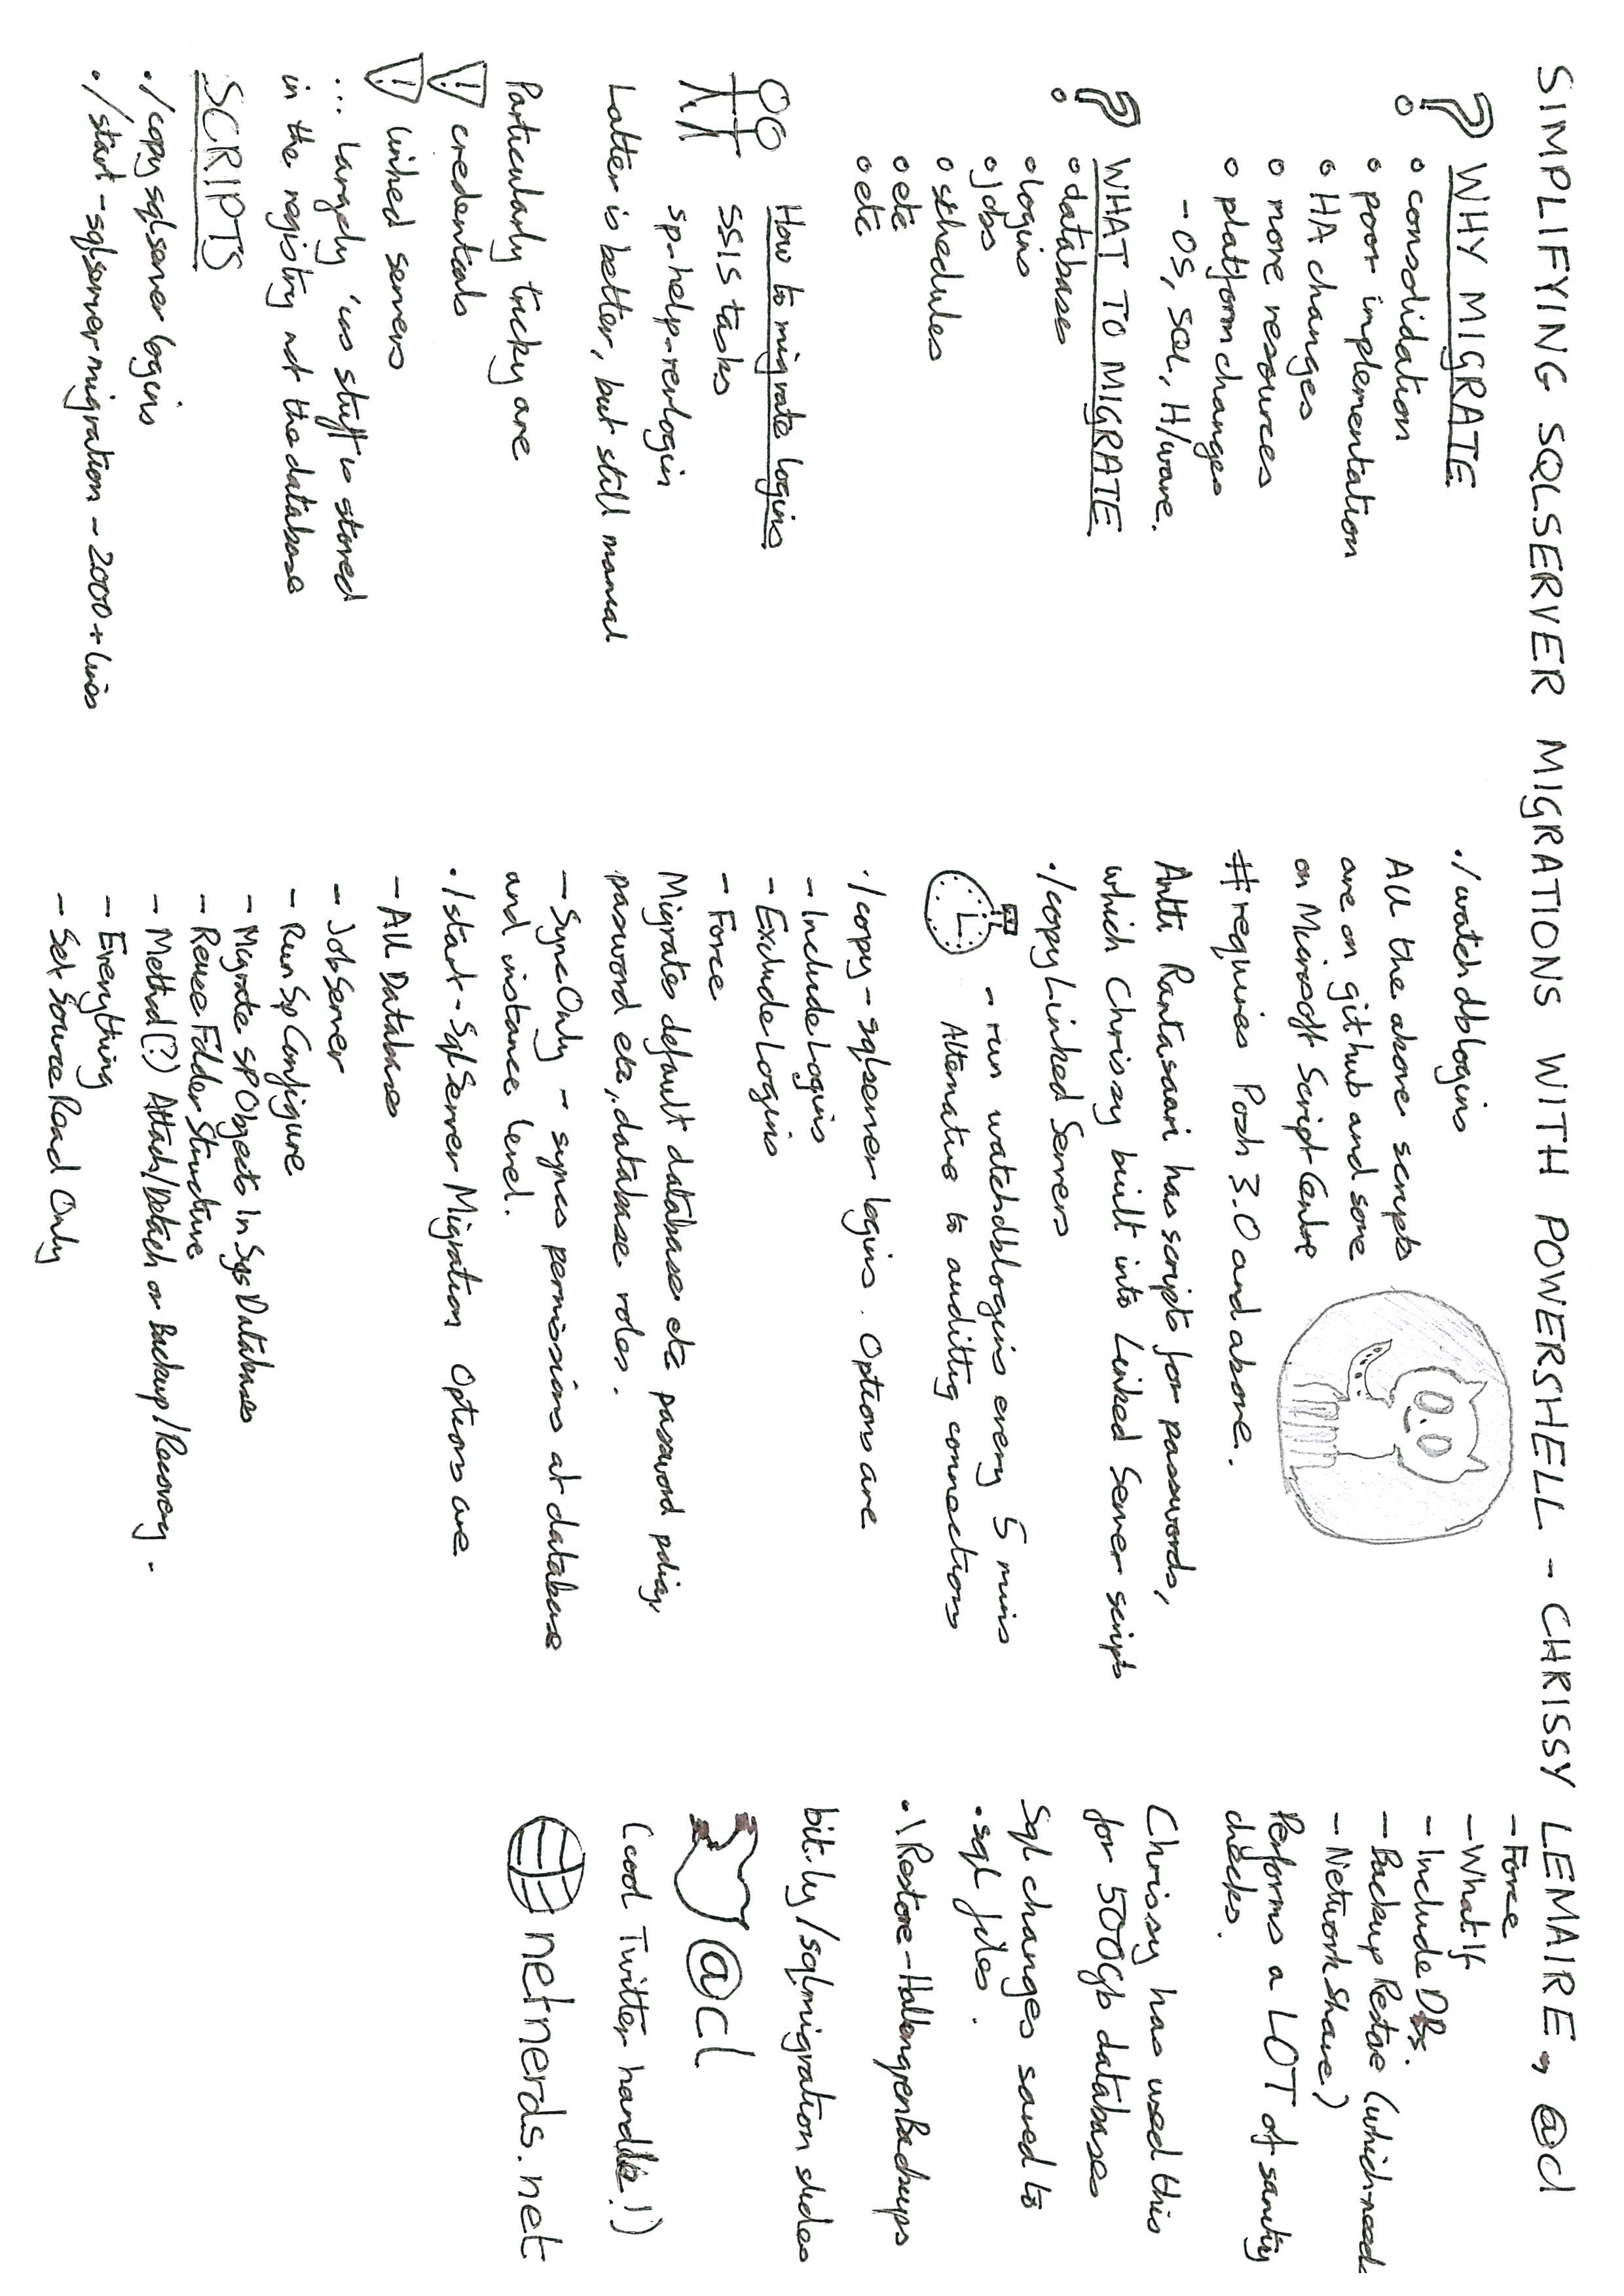 SIMPLIFYING SQLSERVER MIGRATIONS WITH POWERSHELL - CHRISSY LEMAIRE, @cl
? WHY MIGRATE
o consolidation
o poor implementation
o HA changes
o more resources
o platform changes
- OS, SQL, H/ware.
? WHAT TO MIGRATE
o databases
o logins
o jobs
o schedules
o etc
o etc
How to migrate logins
SSIS tasks
sp_help_revlogin
Latter is better, but still manual
Particularly tricky are
! credentials
! linked servers
... largely 'cos stuff is stored
in the registry not the database
SCRIPTS
./copy sqlserver logins
./start-sqlserver migration - 2000+ lines
./watchdblogins
All the above scripts
are on github and some
on Microsoft Script Centre
#requires Posh 3.0 and above.
Antti Rantasaari has scripts for passwords,
which Chrissy built into Linked Server scripts
./copy Linked Servers
- run watchdblogins every 5 mins
Alternative to audittig connections
./copy-sqlserver logins. Options are
- Include Logins
- Exclude Logins
- Force
Migrates default database etc password policy,
pasword etc, database roles.
- SyncOnly - syncs permissions at database
and instance level.
./start-SqlServer Migration Options are
- All Databases
- JobServer
- Run Sp Configure
- Migrate SP Objects In Sys Databases
- Reuse Folder Structure
- Method(?) Attach/Detach or Backup/Recovery.
- Everything
- Set Source Read Only
- Force
- What If
- Include DBs.
- Backup Restore (which needs
- Network Share)
Performs a LOT of sanity
checks.
Chrissy has used this
for 500Gb databases
Sql changes saved to
.sql files.
.\Restore-HallengrenBackups
bit.ly/sqlmigration slides
@cl
(cool Twitter handle!)
netnerds.net